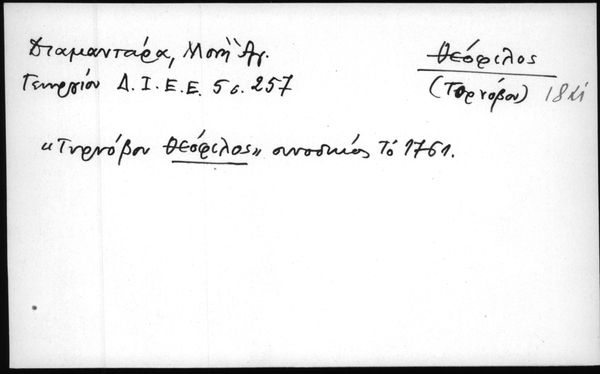 Διαμαντάρα, Μονή Ἁγ.
Γεωργίου Δ.Ι.Ε.Ε. 5 σ. 257
Θεόφιλος
(Τορνόβου)
«Τυρνόβου Θεόφιλος» συνοδικός τό 1761.